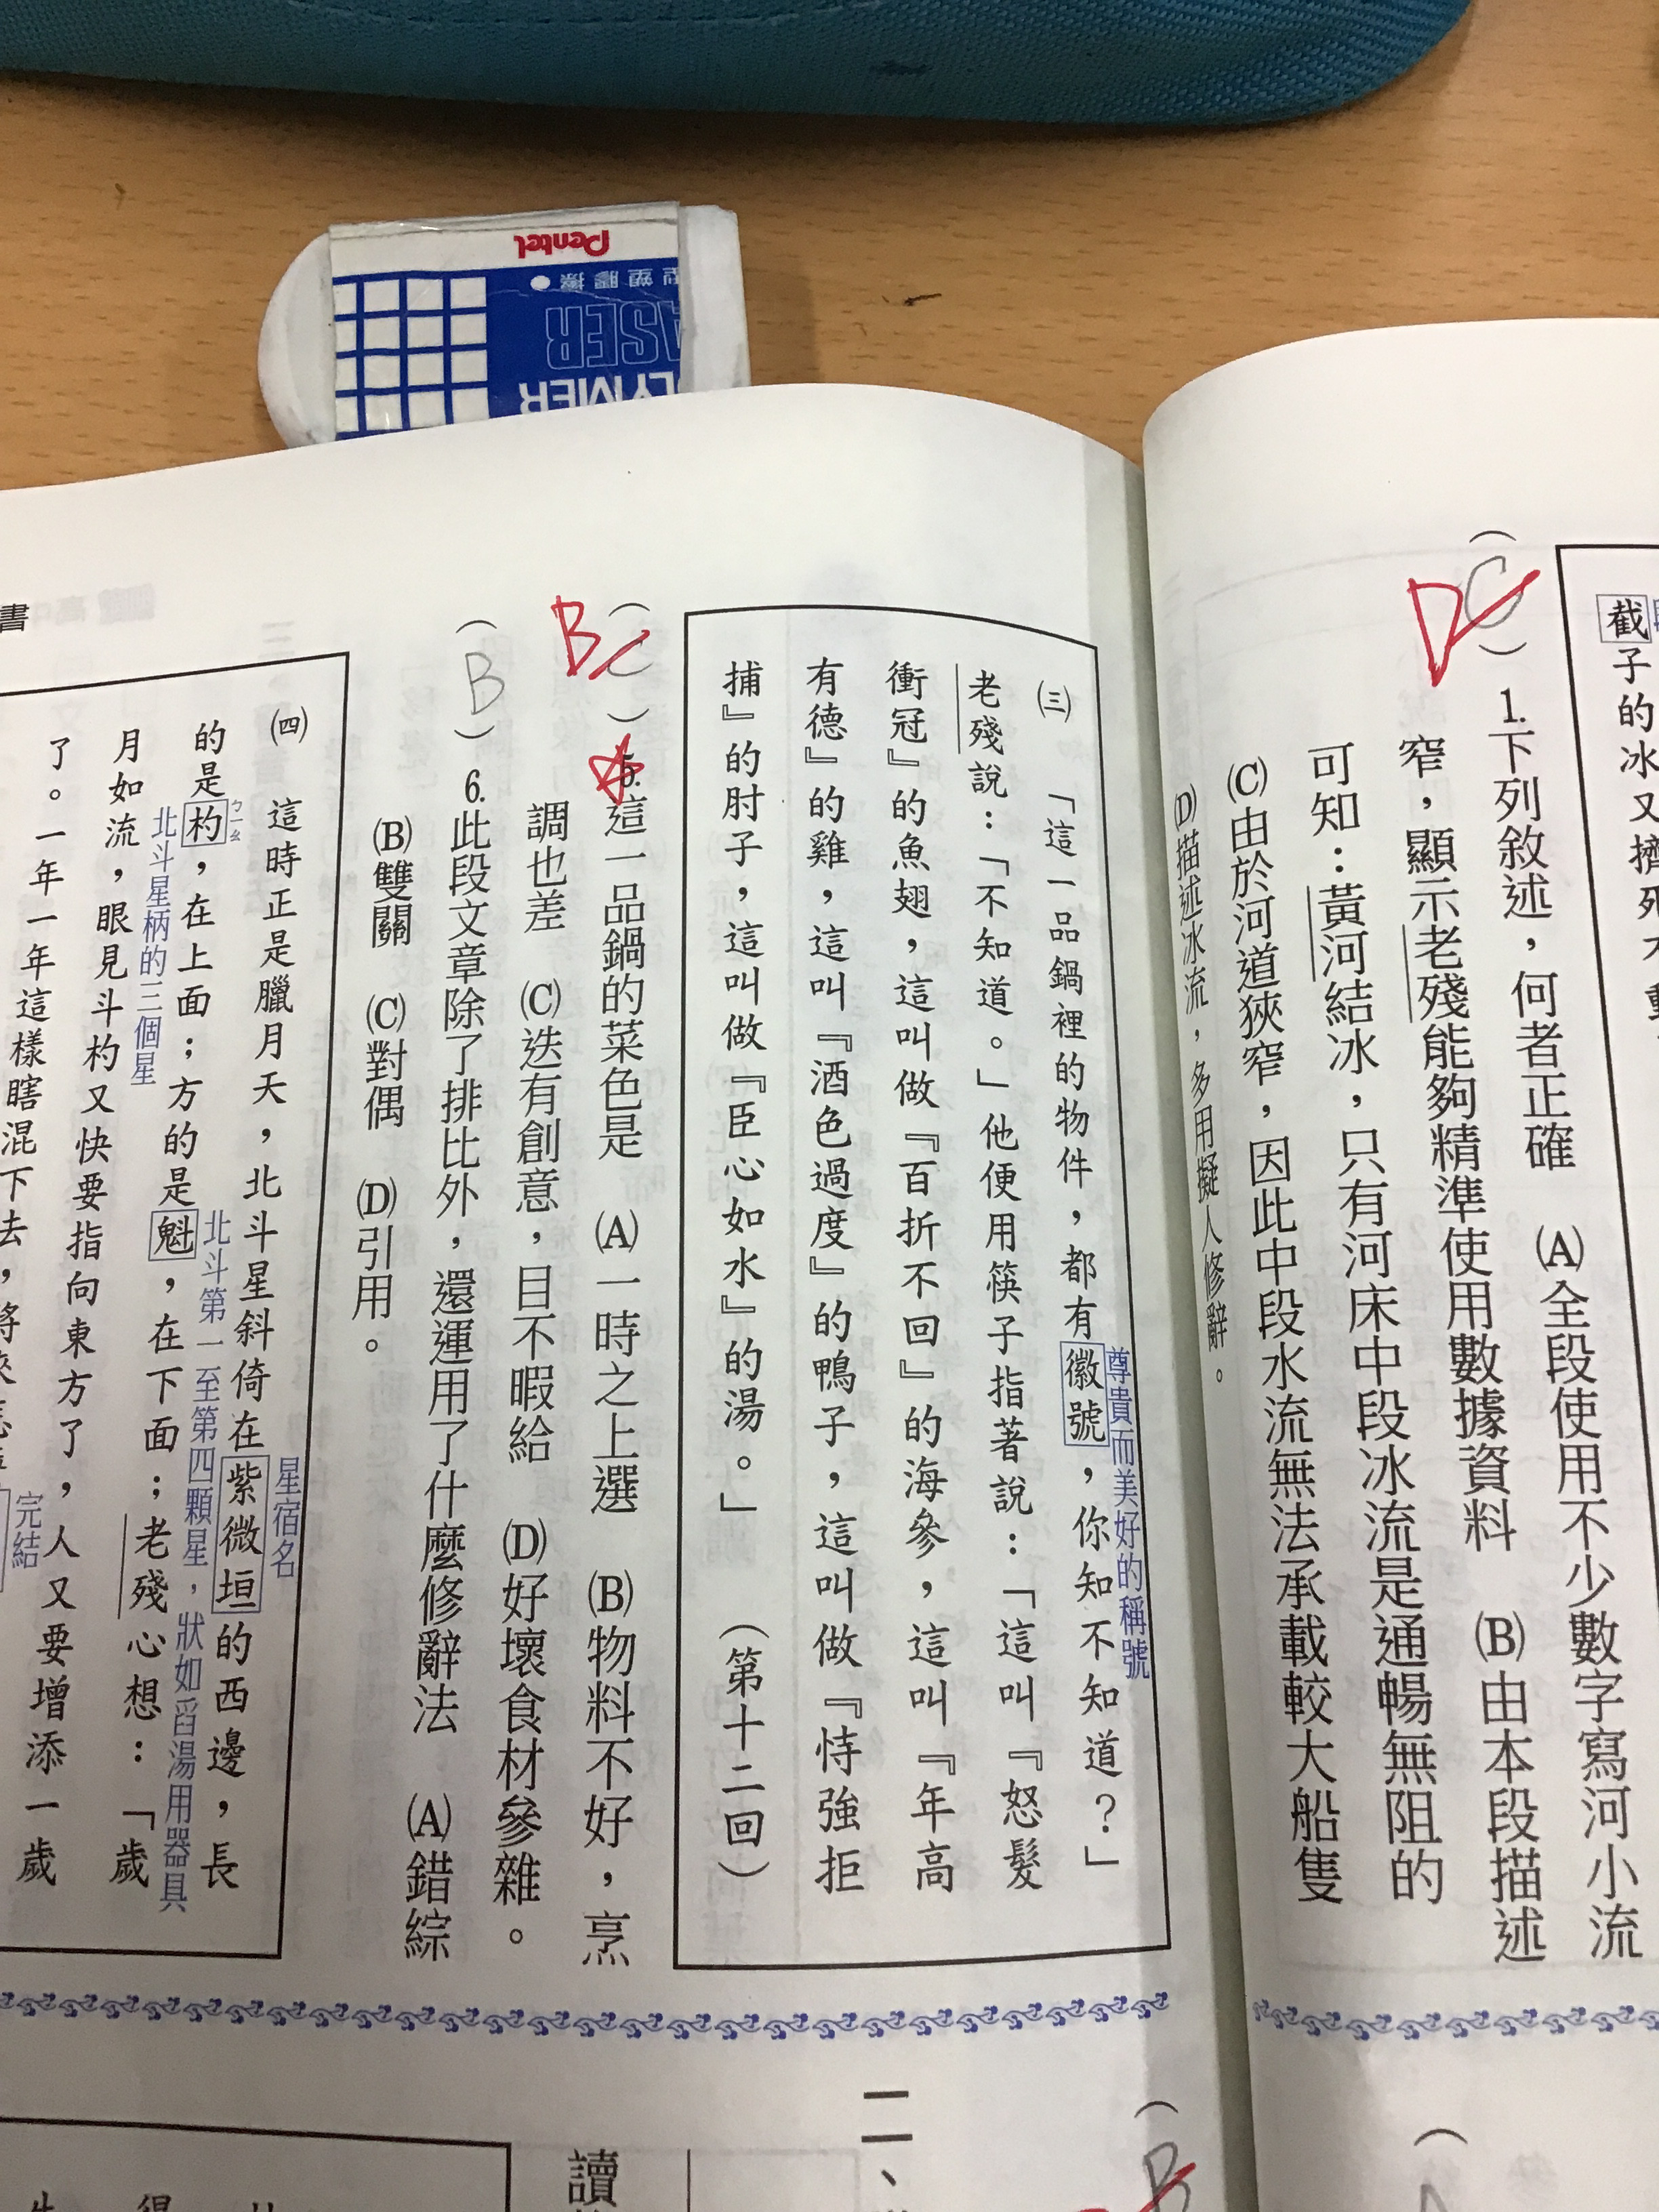 Pentel
型塑膠擦
ASER
LYMER
截
子的冰又擠死
(C)
D
1.下列敘述，何者正確　(A)全段使用不少數字寫河小流
窄，顯示老殘能夠精準使用數據資料　(B)由本段描述
可知：黃河結冰，只有河床中段冰流是通暢無阻的
(C)由於河道狹窄，因此中段水流無法承載較大船隻
(D)描述冰流，多用擬人修辭。
(三)
「這一品鍋裡的物件，都有徽號，你知不知道？」
尊貴而美好的稱號
老殘說：「不知道。」他便用筷子指著說：「這叫『怒髮
衝冠』的魚翅，這叫做『百折不回』的海參，這叫『年高
有德』的雞，這叫『酒色過度』的鴨子，這叫做『恃強拒
捕』的肘子，這叫做『臣心如水』的湯。」　（第十二回）
(C)
B
5.這一品鍋的菜色是　(A)一時之上選　(B)物料不好，烹
調也差　(C)迭有創意，目不暇給　(D)好壞食材參雜。
(B)
6.此段文章除了排比外，還運用了什麼修辭法　(A)錯綜
(B)雙關　(C)對偶　(D)引用。
(四)
這時正是臘月天，北斗星斜倚在紫微垣的西邊，長
星宿名
的是杓，在上面；方的是魁，在下面；老殘心想：「歲
ㄅㄧㄠ
北斗第一至第四顆星，狀如舀湯用器具
北斗星柄的三個星
月如流，眼見斗杓又快要指向東方了，人又要增添一歲
了。一年一年這樣瞎混下去，將來
完結
書
二、
讀
(B